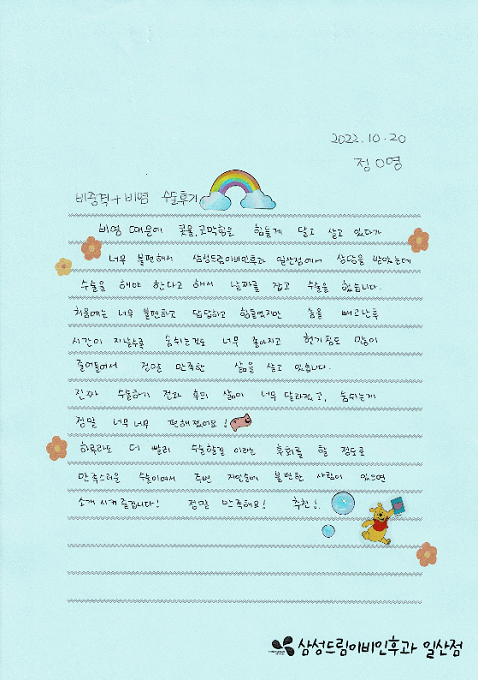 2022.10.20
정O영
비중격+비염 수술후기
비염 때문에 콧물,코막힘은 힘들게 달고 살고 있다가
너무 불편해서 삼성드림이비인후과 일산점에서 상담을 받았는데
수술을 해야 한다고 해서 날짜를 잡고 수술을 했습니다.
처음에는 너무 불편하고 답답하고 힘들었지만 솜을 빼고난후
시간이 지날수록 숨쉬는것도 너무 좋아지고 헛기침도 많이
줄어들어서 정말 만족한 삶을 살고 있습니다.
진짜 수술하기 전과 후의 삶이 너무 달라졌고, 숨쉬는게
정말 너무너무 편해졌어요!
하루라도 더 빨리 수술할걸 이라는 후회를 할 정도로
만족스러운 수술이여서 주변 지인들에 불편한 사람이 있으면
소개 시켜 줄겁니다! 정말 만족해요! 추천!
삼성드림이비인후과 일산점